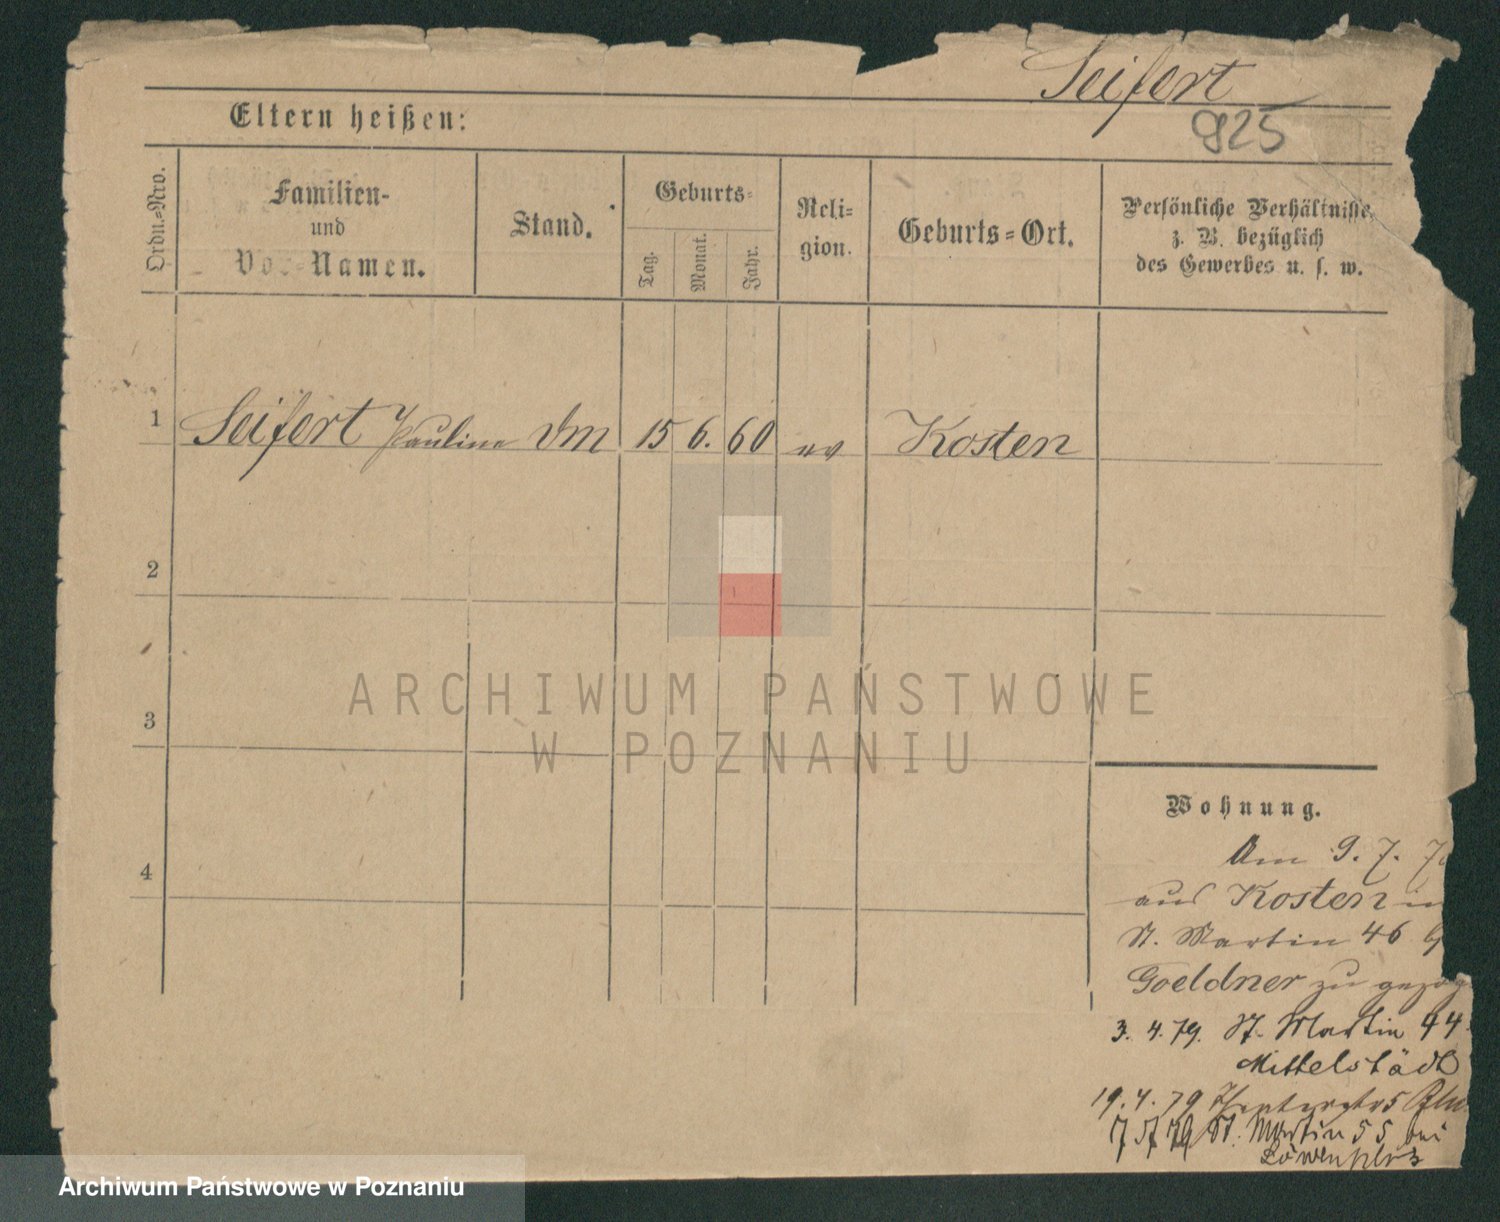 Seifert
925
Eltern heißen:
Ordn.-Nro.
Familien-
und
Vor-Namen.
Stand.
Geburts-
Tag.
Monat.
Jahr.
Reli-
gion.
Geburts-Ort.
Persönliche Verhältnisse,
z. B. bezüglich
des Gewerbes u. s. w.
1 Seifert Pauline Dm 15 6. 60 ev Kosten
2
3
4
Wohnung.
Am 9. 7. 7
aus Kosten in
St. Martin 46
Goeldner zu gezog
3. 4. 79. St. Martin 44
Mittelstädt
19. 4. 79 Theaterstr 5
St. Martin 55 bei
ARCHIWUM PAŃSTWOWE
W POZNANIU
Archiwum Państwowe w Poznaniu